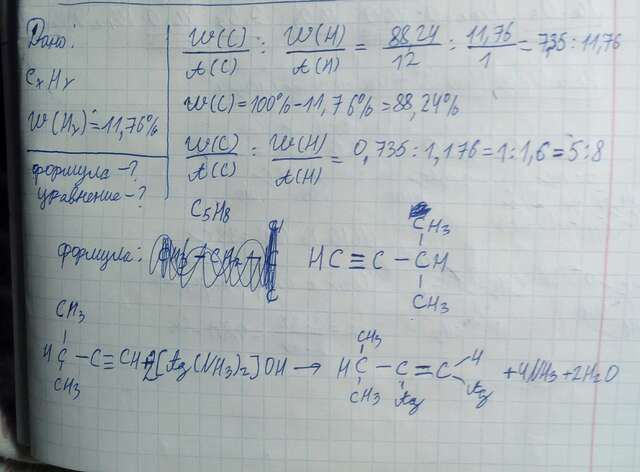 Дано:
CxHy
W(Hy)=11,76%
формула-?
уравнение-?
W(C)/A(C) : W(H)/A(H) = 88,24/12 : 11,76/1 = 7,35 : 11,76
W(C)=100%-11,76%=88,24%
W(C)/A(C) : W(H)/A(H) = 0,735:1,176=1:1,6=5:8
C5H8
формула:
CH3
HC≡C-CH
CH3
CH3
HC-C≡CH+2[Ag(NH3)2]OH → HC-C=C +4NH3+2H2O
CH3
CH3
CH3
Ag
H
Ag